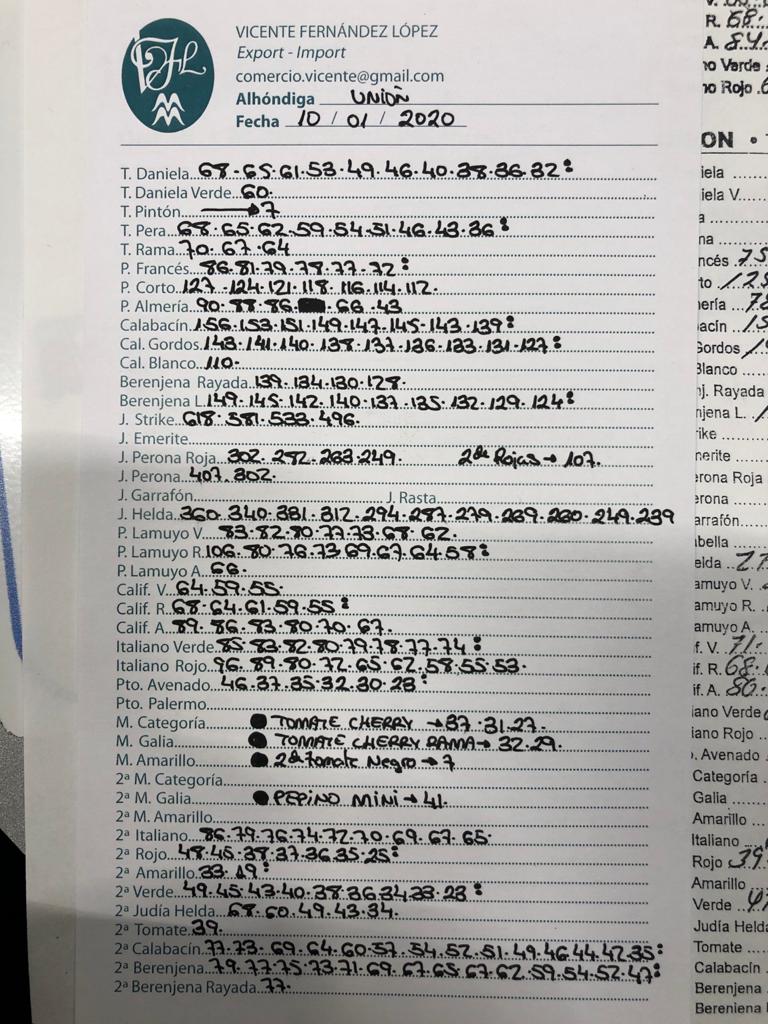 VICENTE FERNÁNDEZ LÓPEZ
Export - Import
comercio.vicente@gmail.com
Alhóndiga UNION
Fecha 10 / 01 / 2020
T. Daniela..68-65.61.53.49.46.40.38.36.32:
T. Daniela Verde..60.
T. Pintón..→7
T. Pera..68.65.62.59.54.51.46.43.36:
T. Rama..70.67.64
P. Francés..86.81.79.78.77.72:
P. Corto..127.124.121.118.116.114.112.
P. Almería..90.88.86. 66.43
Calabacín..156.153.151.149.147.145.143.139:
Cal. Gordos..143.141.140.138.137.136.133.131.127:
Cal. Blanco..110.
Berenjena Rayada..139.134.130.128.
Berenjena L..149.145.142.140.137.135.132.129.124:
J. Strike..618.581.533.496.
J. Emerite
J. Perona Roja..302.282.263.249. 2ª de Rojas→107.
J. Perona..407.302.
J. Garrafón J. Rasta
J. Helda..360.340.331.312.294.287.279.269.260.249.239
P. Lamuyo V..83.82.80.77.73.68.62.
P. Lamuyo R..106.80.76.73.69.67.64.58:
P. Lamuyo A..66.
Calif. V..64.59.55.
Calif. R..68.64.61.59.55:
Calif. A..89.86.83.80.70.67.
Italiano Verde..85.83.82.80.79.78.77.74:
Italiano Rojo..96.89.80.72.65.62.58.55.53.
Pto. Avenado..46.37.35.32.30.28:
Pto. Palermo
M. Categoría ● TOMATE CHERRY →37.31.27.
M. Galia ● TOMATE CHERRY RAMA→32.29.
M. Amarillo ● 2ª de Tomate Negro→7
2ª M. Categoría
2ª M. Galia ● PEPINO MINI→41.
2ª M. Amarillo
2ª Italiano..86.79.76.74.72.70.69.67.65.
2ª Rojo..48.45.38.37.36.35.25:
2ª Amarillo..33.19:
2ª Verde..49.45.43.40.38.36.34.33.23:
2ª Judía Helda..68.60.49.43.34.
2ª Tomate..39.
2ª Calabacín..77.73.69.64.60.57.54.52.51.49.46.44.42.35:
2ª Berenjena..79.77.75.73.71.69.67.65.67.62.59.54.52.47:
2ª Berenjena Rayada..77.